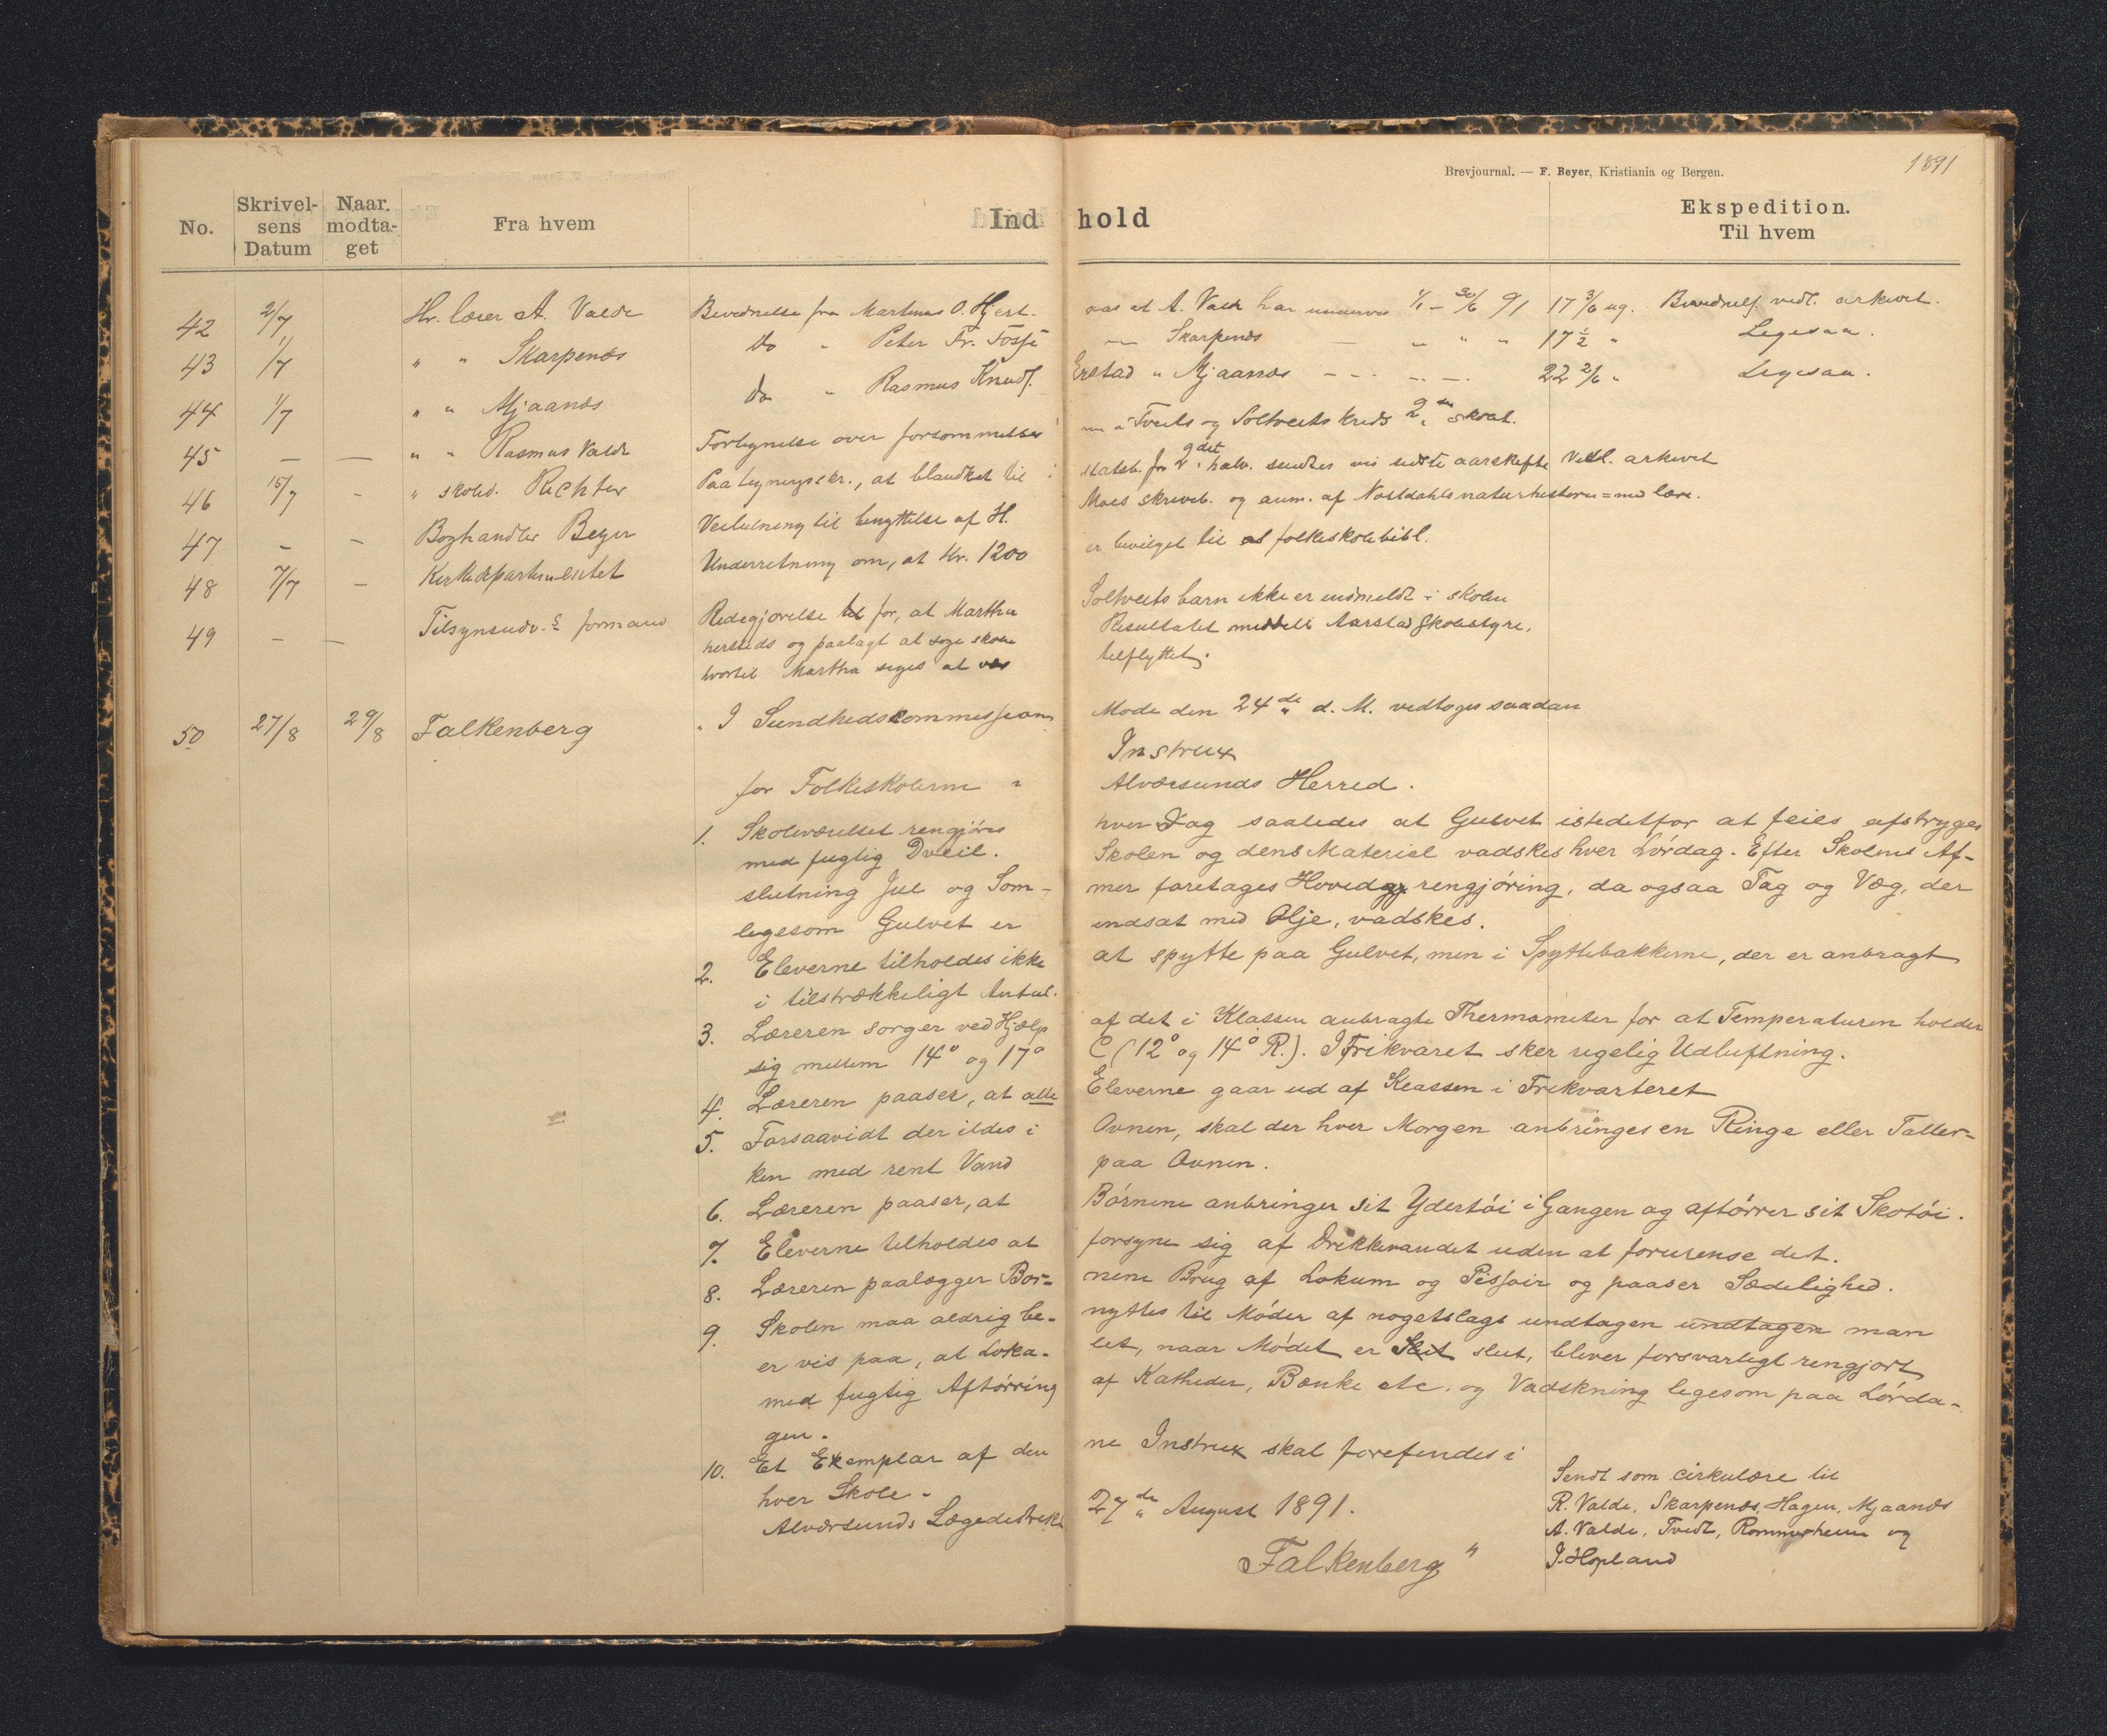 Brevjournal. — F. Beyer, Kristiania og Bergen.
1891
No. Skrivelsens Datum Naar. modtaget Fra hvem Indhold Ekspedition. Til hvem
42 2/7 Hr. lærer A. Valde Bevidnelse fra Martinus O. Hjert. aas at A. Valde har undervist 1/1 – 30/6 91 17 3/6 ug. Bevidnels. vedl. arkivet.
43 1/7 " " Skarpenes do " Peter Fr. Fosse — Skarpenes — " " " 17 1/2 " Legesaa.
44 1/7 " " Mjaanes do " Rasmus Knuds. Erstad " Mjaanes – – – – 22 2/6 " Legesaa.
45 — — " " Rasmus Valde Fortegnelse over forsømmelser i Tveits og Soltveits kreds 2det kvat.
46 15/7 - " skoled. Richter Paategningsskr., at blanket til statsb. for 2det halv. sendes ved sidste aarskifte Vedl. arkivet
47 – – Boghandler Beyer Veiledning til benyttelse af H. Moes skriveb. og anm. af Nostdahls naturhistorie = med lære.
48 7/7 – Kirkedepartementet Underretning om, at kr. 1200 er bevilget til folkeskolebibl.
49 – – Tilsynsudv.s formand Redegjørelse for, at Martha Soltveits barn ikke er indmeldt i skolen
hersteds og paalagt at søge skole Resultatet meddelt Aarstad Skolestyre,
hvortil Martha siges at være tilflyttet.
50 27/8 29/8 Falkenberg "I Sundhedskommissionens Møde den 24de d. M. vedtoges saadan
Instrux
for Folkeskolerne i Alværsunds Herred.
1. Skoleværelset rengjøres hver Dag saaledes at Gulvet istedetfor at feies afstryges
med fugtig Dveil. Skolen og dens Materiel vadskes hver Lørdag. Efter Skolens Af-
slutning Jul og Som- mer foretages Hovedrengjøring, da ogsaa Tag og Væg, der
legesom Gulvet er indsat med Olje, vadskes.
2. Eleverne tilholdes ikke at spytte paa Gulvet, men i Spyttebakkerne, der er anbragt
i tilstrækkeligt Antal.
3. Læreren sorger ved Hjælp af det i Klassen anbragte Thermometer for at Temperaturen holder
sig mellem 14° og 17° C (12° og 14° R.). I Frikvaret sker rigelig Udluftning.
4. Læreren paaser, at alle Eleverne gaar ud af Klassen i Frikvarteret
5. Forsaavidt der ildes i Ovnen, skal der hver Morgen anbringes en Ringe eller Taller-
ken med rent Vand paa Ovnen.
6. Læreren paaser, at Børnene anbringer sit Ydertøi i Gangen og aftørrer sit Skotøi.
7. Eleverne tilholdes at forsyne sig af Drikkevandet uden at forurense det.
8. Læreren paalægger Bør- nene Brug af Lokum og Pissoir og paaser Sædelighed.
9. Skolen maa aldrig be- nyttes til Møder af nogetslags undtagen undtagen man
er vis paa, at Loka- let, naar Mødet er Slut slut, bliver forsvarligt rengjort
med fugtig Aftørring af Katheder, Bænke etc. og Vadskning legesom paa Lørda-
gen.
10. Et Exemplar af den ne Instrux skal forefindes i
hver Skole.
Alværsunds Lægedistrikt 27de August 1891.
Falkenberg"
Sendt som cirkulære til
R. Valde, Skarpenes, Hagen, Mjaanes
A. Valde, Tvedt, Rommerheim og
J. Hopland